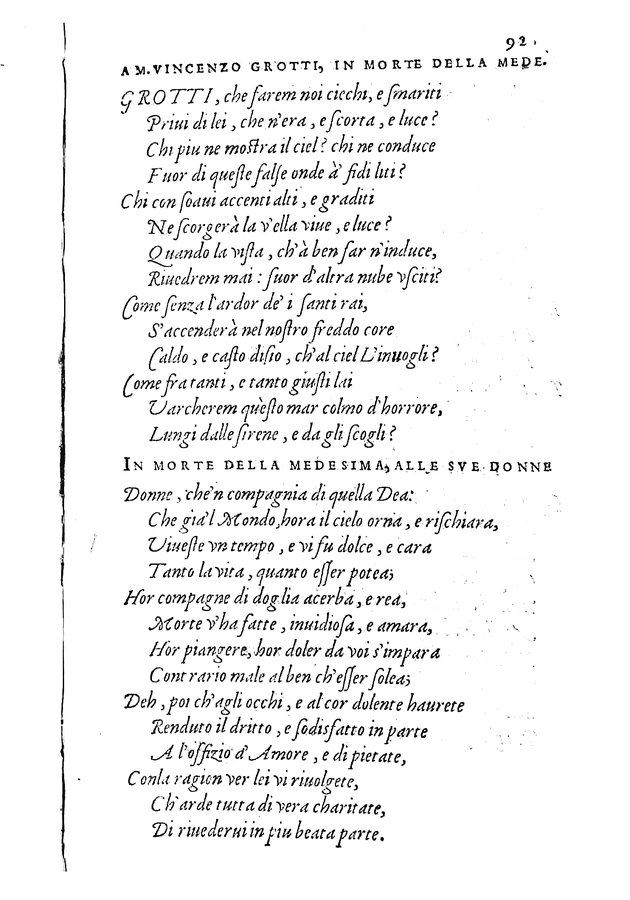 92.
A M. VINCENZO GROTTI, IN MORTE DELLA MEDE.
GROTTI, che farem noi ciechi, e ſmariti
Priui di lei, che n'era, e ſcorta, e luce?
Chi piu ne moſtra il ciel? chi ne conduce
Fuor di queſte falſe onde à fidi liti?
Chi con ſoaui accenti alti, e graditi
Ne ſcorgerà la v'ella viue, e luce?
Quando la viſta, ch'à ben far n'induce,
Riuedrem mai: fuor d'altra nube vſciti?
Come ſenza l'ardor de' i ſanti rai,
S'accenderà nel noſtro freddo core
Caldo, e caſto diſio, ch'al ciel L'inuogli?
Come fra tanti, e tanto giuſti lai
Varcherem queſto mar colmo d'horrore,
Lungi dalle ſirene, e da gli ſcogli?
IN MORTE DELLA MEDESIMA, ALLE SVE DONNE
Donne, che'n compagnia di quella Dea:
Che gia'l Mondo, hora il cielo orna, e riſchiara,
Viueſte vn tempo, e vi fu dolce, e cara
Tanto la vita, quanto eſſer potea;
Hor compagne di doglia acerba, e rea,
Morte v'ha fatte, inuidioſa, e amara,
Hor piangere, hor doler da voi s'impara
Contrario male al ben ch'eſſer ſolea;
Deh, poi ch'agli occhi, e al cor dolente haurete
Renduto il dritto, e ſodisfatto in parte
A l'offizio d'Amore, e di pietate,
Con la ragion ver lei vi riuolgete,
Ch'arde tutta di vera charitate,
Di riuederui in piu beata parte.